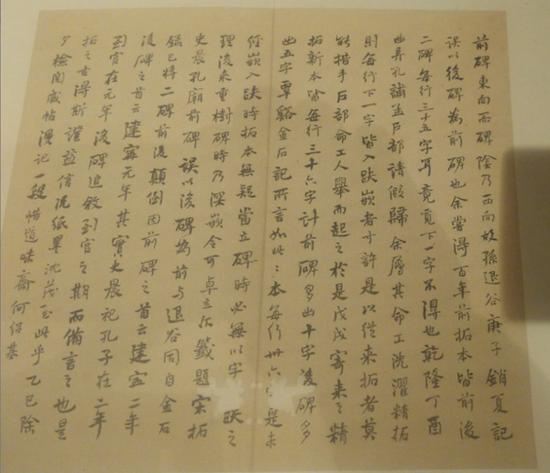 前碑東向而碑陰乃西向故孫退谷庚子銷夏記
誤以後碑為前碑也余嘗得百年前拓本皆前後
二碑每行三十五字耳竟覓下一字不得也乾隆丁酉
曲阜孔誧孟戶部請假歸余屬其命工洗濯精拓
則每行下一字皆入趺嵌者寸許是以從來拓者莫
能措手戶部命工人舉而起之於是戊戌寄來之精
拓新本皆每行三十六字計前碑多出十字後碑多
出五字覃谿金石記所言如此本每行卅六字是未
經嵌入趺時拓本無疑當立碑時必無以字趺之
理後來重樹碑時乃深嵌令可卓立尔籤題宋拓
史晨孔廟前碑誤以後碑為前與退谷同自金石
錄已將二碑前後顛倒因前碑之首云建寧二年
後碑之首云建寧元年其實史晨祀孔子在二年
到官在元年後碑追敘到官之期而備言之也是
拓之古得斯證益信紙墨沈茂至此乎乙巳除
夕檢閱帖漫記一段惜道味齋何紹基